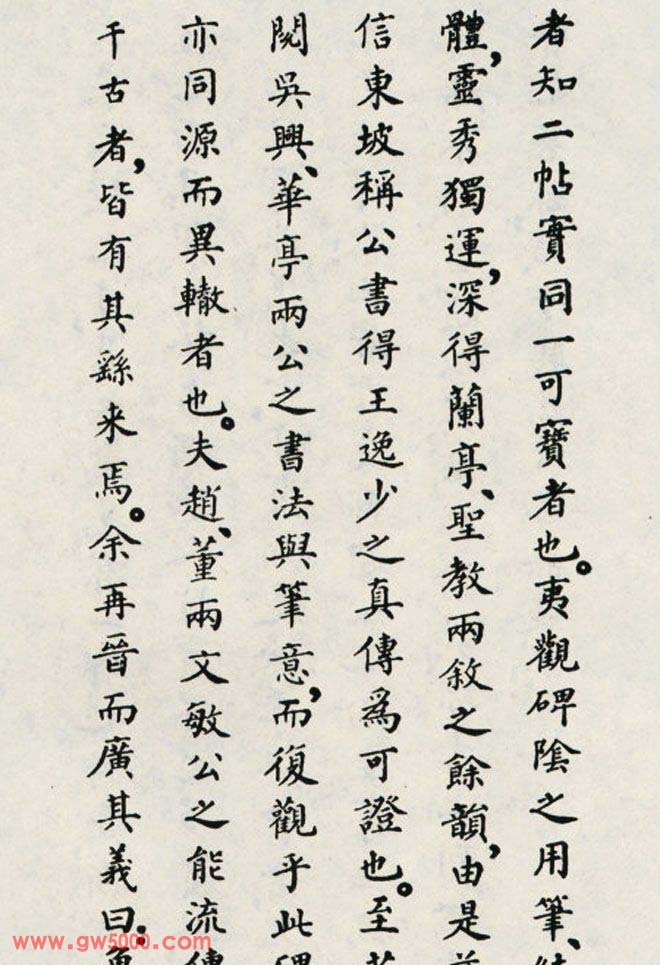 者知二帖實同一可寶者也。夷觀碑陰之用筆、
體，靈秀獨運，深得蘭亭、聖教兩敘之餘韻，由是
信東坡稱公書得王逸少之真傳爲可證也。至
閱吳興、華亭兩公之書法與筆意，而復觀乎此
亦同源而異轍者也。夫趙、董兩文敏公之能流
千古者，皆有其繇来焉。余再晉而廣其義曰：
www.gw5000.com